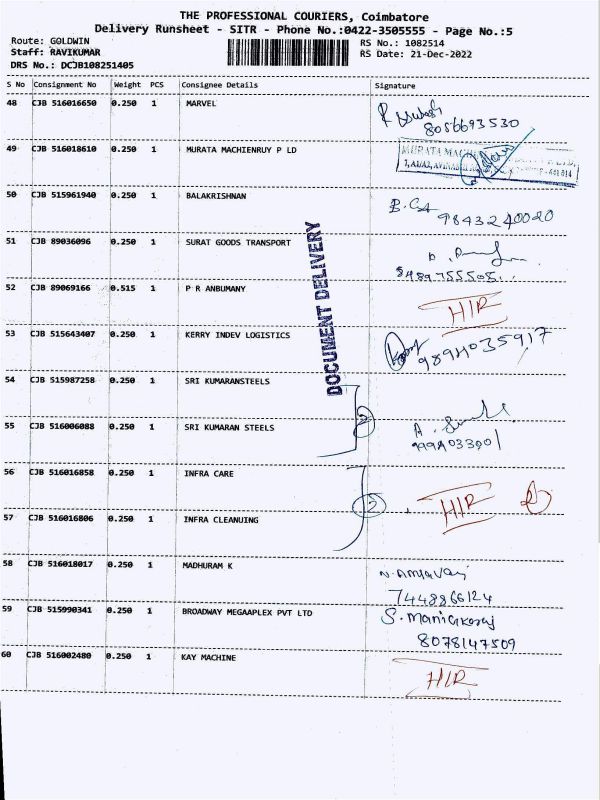 THE PROFESSIONAL COURIERS, Coimbatore
Delivery Runsheet - SITR - Phone No.:0422-3505555 - Page No.:5
Route: GOLDWIN
Staff: RAVIKUMAR
DRS No.: DCJB108251405
RS No.: 1082514
RS Date: 21-Dec-2022
S No Consignment No Weight PCS Consignee Details Signature
48 CJB 516016650 0.250 1 MARVEL
8056693530
49 CJB 516018610 0.250 1 MURATA MACHIENRUY P LD
MURATA MACHI
50 CJB 515961940 0.250 1 BALAKRISHNAN
9843240020
51 CJB 89036096 0.250 1 SURAT GOODS TRANSPORT
52 CJB 89069166 0.515 1 P R ANBUMANY
HIR
53 CJB 515643407 0.250 1 KERRY INDEV LOGISTICS
DOCUMENT DELIVERY
54 CJB 515987258 0.250 1 SRI KUMARANSTEELS
2
55 CJB 516006088 0.250 1 SRI KUMARAN STEELS
56 CJB 516016858 0.250 1 INFRA CARE
2
HIR
57 CJB 516016806 0.250 1 INFRA CLEANUING
58 CJB 516018017 0.250 1 MADHURAM K
7448866124
59 CJB 515990341 0.250 1 BROADWAY MEGAAPLEX PVT LTD
S. Manickaraj
8078147509
60 CJB 516002480 0.250 1 KAY MACHINE
HIR